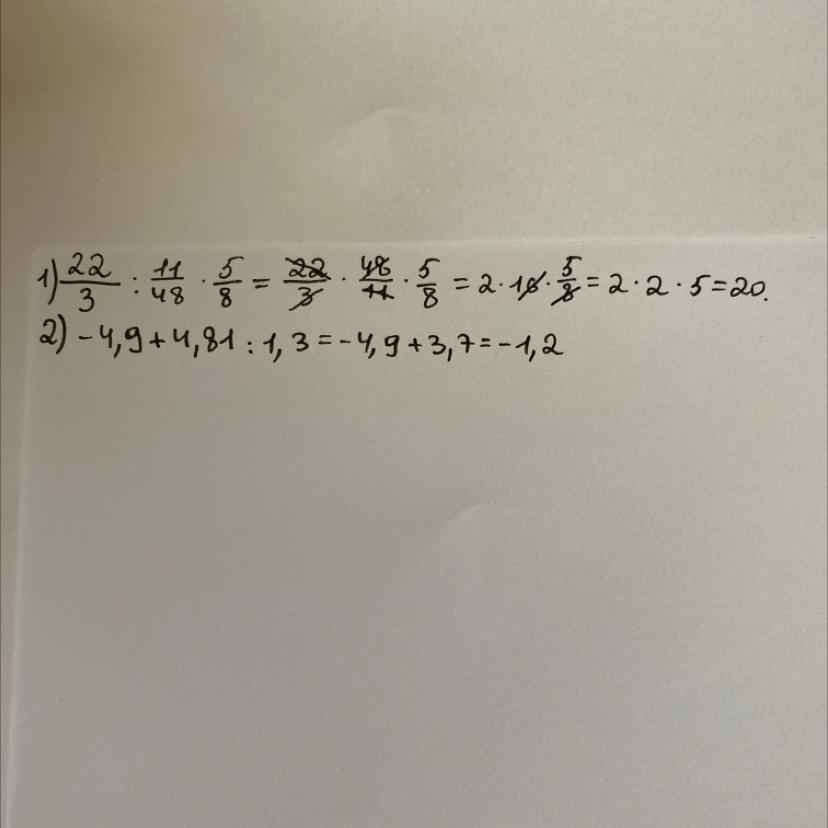 1) 22/3 : 11/48 · 5/8 = 22/3 · 48/11 · 5/8 = 2 · 16 · 5/8 = 2 · 2 · 5 = 20.
2) - 4,9 + 4,81 : 1,3 = - 4,9 + 3,7 = - 1,2